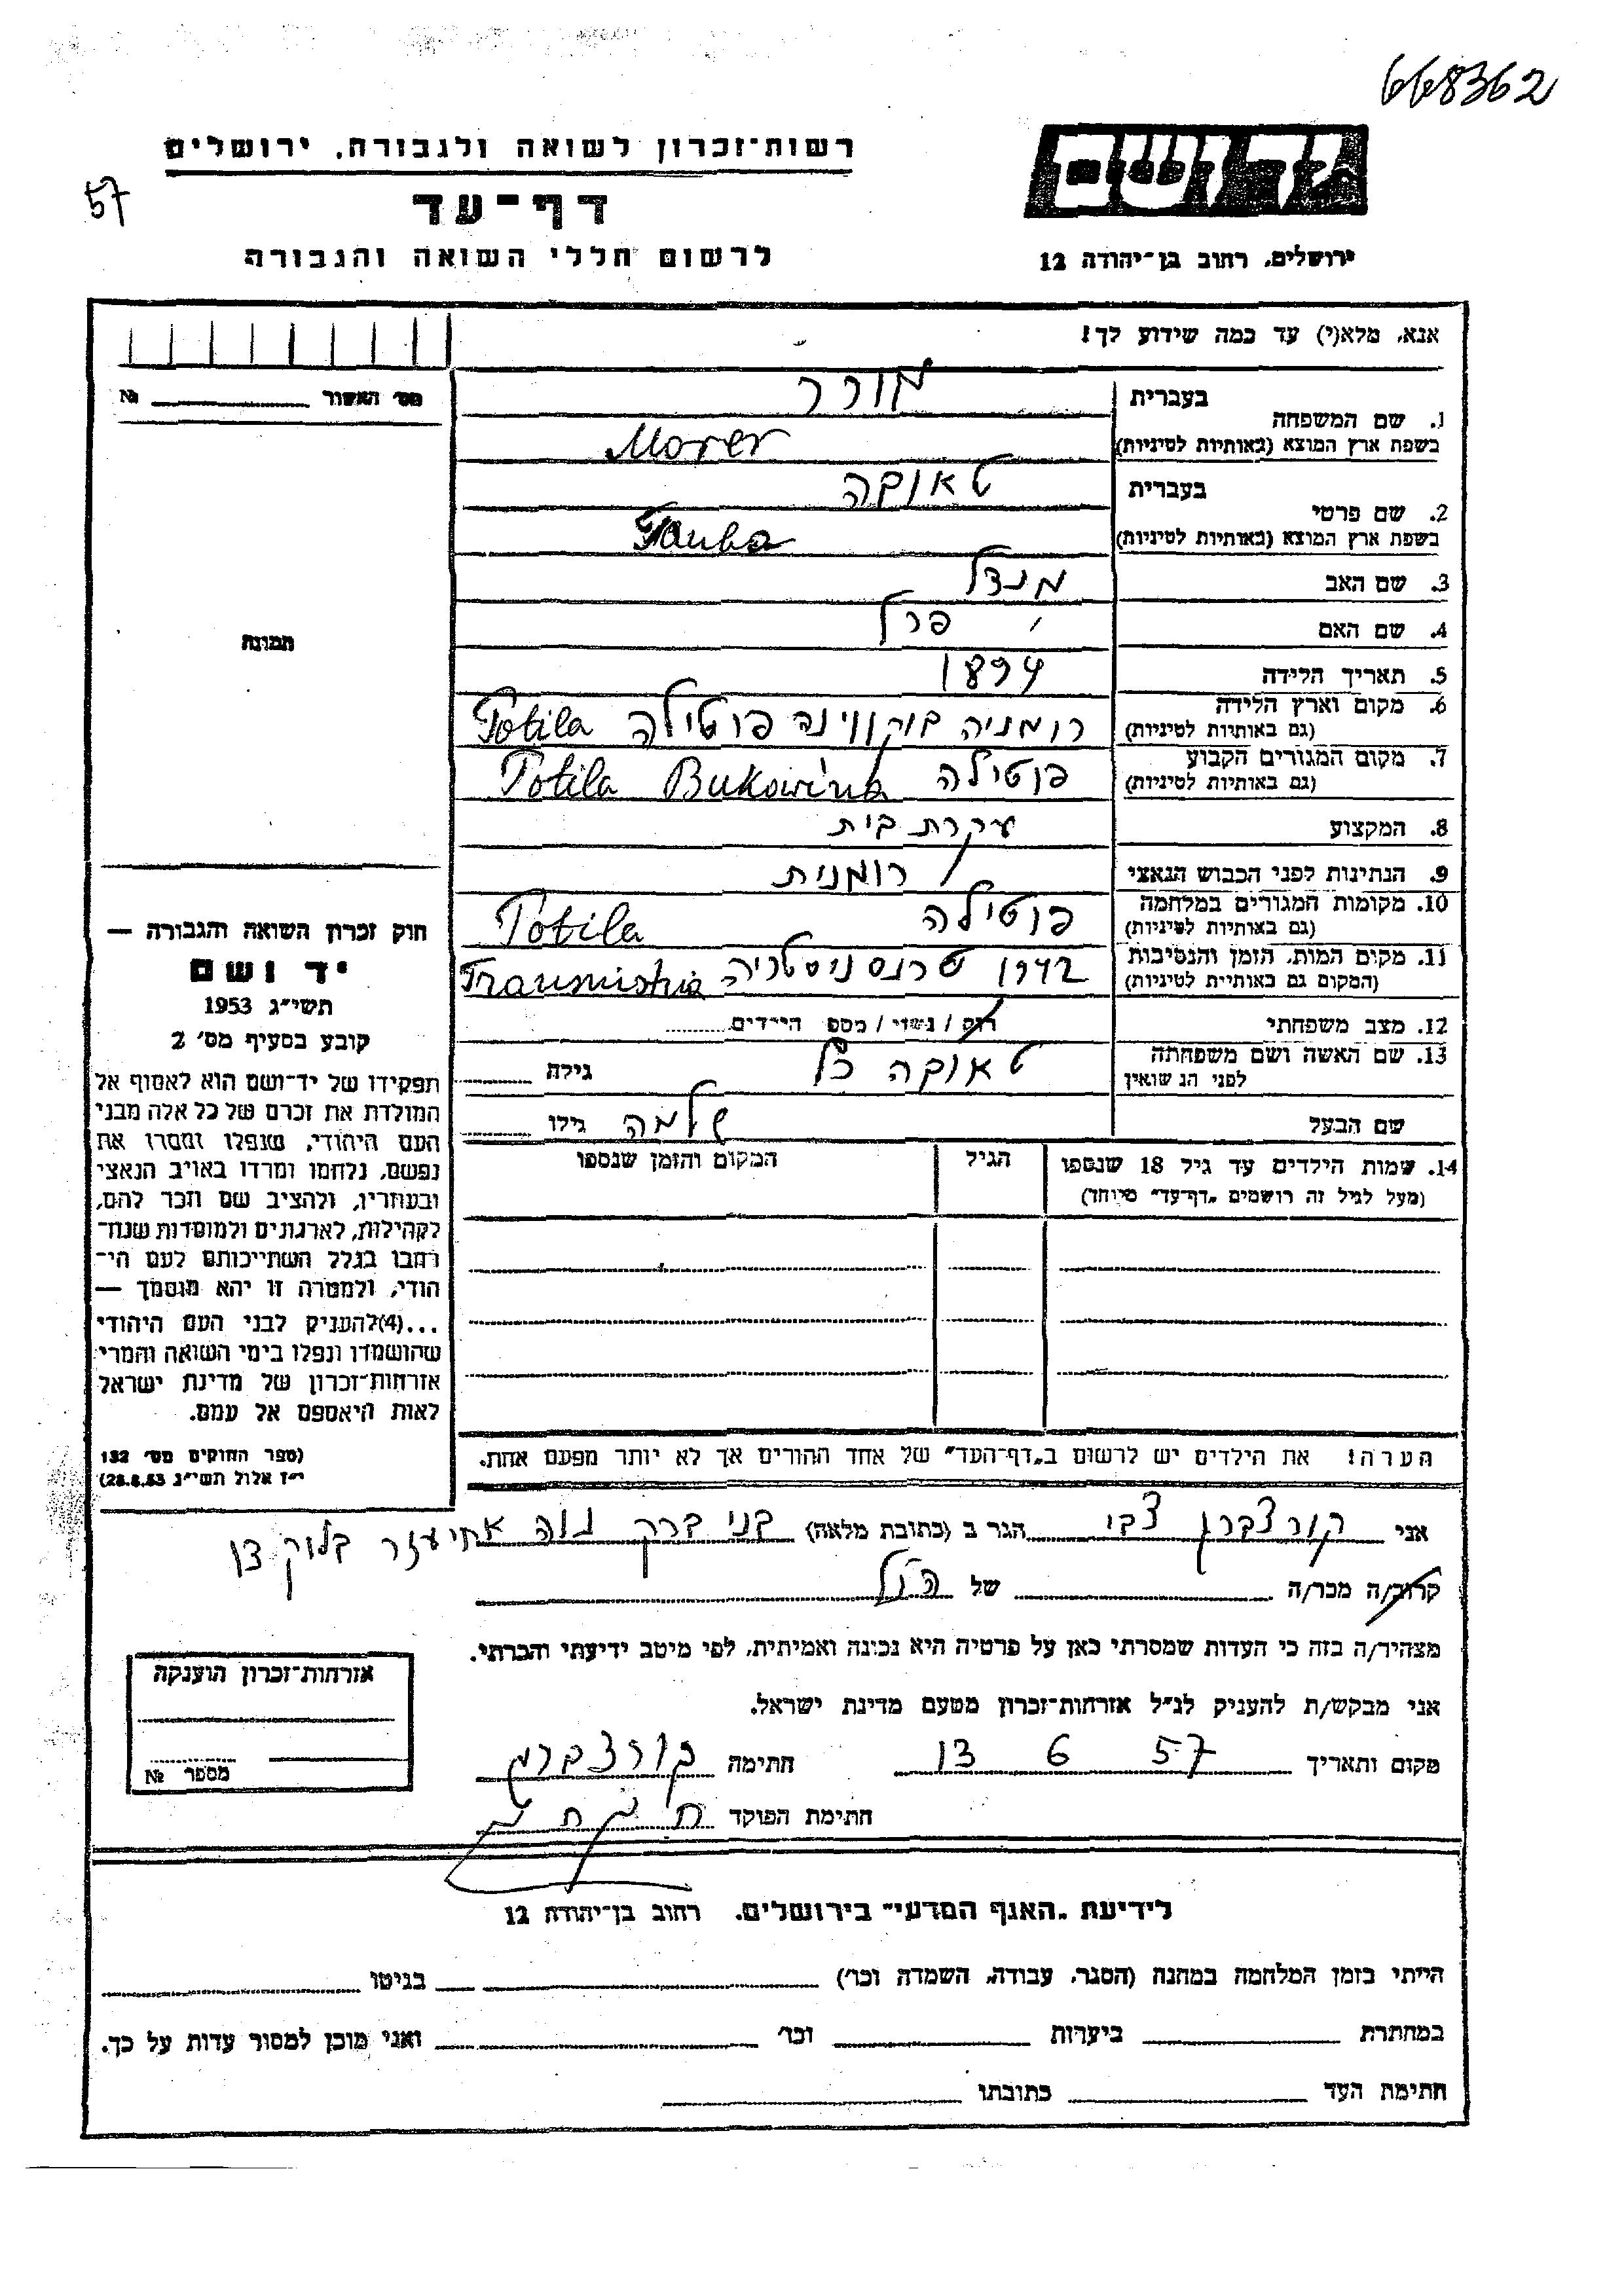 668362
רשות־זכרון לשואה ולגבורה, ירושלים
יד ושם
57
דף־עד
לרשום חללי השואה והגבורה
ירושלים, רחוב בן־יהודה 12
אנא, מלא(י) עד כמה שידוע לך!
מס׳ האשור № 
1. שם המשפחה בעברית מורר
בשפת ארץ המוצא (באותיות לטיניות) Morer
2. שם פרטי בעברית טאובה
בשפת ארץ המוצא (באותיות לטיניות) Tauba
3. שם האב מנדל
4. שם האם פרל
תמונה
5. תאריך הלידה 1894
6. מקום וארץ הלידה רומניה בוקווינה פוטילה Potila
(גם באותיות לטיניות)
7. מקום המגורים הקבוע פוטילה Potila Bukowina
(גם באותיות לטיניות)
8. המקצוע עקרת בית
9. הנתינות לפני הכבוש הנאצי רומנית
10. מקומות המגורים במלחמה פוטילה Potila
(גם באותיות לטיניות)
11. מקום המות, הזמן והנסיבות 1942 טרנסניסטריה Transnistria
(המקום גם באותיית לטיניות)
12. מצב משפחתי רוק / נשוי / מספ הילדים
13. שם האשה ושם משפחתה טאובה גילה
לפני הנשואין
שם הבעל שלמה גילו
14. שמות הילדים עד גיל 18 שנספו הגיל המקום והזמן שנספו
(מעל לגיל זה רושמים „דף־עד״ מיוחד)
הערה! את הילדים יש לרשום ב„דף־העד״ של אחד ההורים אך לא יותר מפעם אחת.
חוק זכרון השואה והגבורה —
יד ושם
תשי״ג 1953
קובע בסעיף מס׳ 2
תפקידו של יד־ושם הוא לאסוף אל
המולדת את זכרם של כל אלה מבני
העם היהודי, שנפלו ומסרו את
נפשם, נלחמו ומרדו באויב הנאצי
ובעוזריו, ולהציב שם וזכר להם,
לקהילות, לארגונים ולמוסדות שנח־
רבו בגלל השתייכותם לעם הי־
הודי, ולמטרה זו יהא מוסמך —
...(4)להעניק לבני העם היהודי
שהושמדו ונפלו בימי השואה והמרי
אזרחות־זכרון של מדינת ישראל
לאות היאספם אל עמם.
(ספר החוקים מס׳ 132
י״ז אלול תשי״ג 28.8.53)
אני קורצברג צבי הגר ב (כתובת מלאה) בני ברק נוה אחיעזר בלוק 13
קרוב/ה מכר/ה של הנ״ל
מצהיר/ה בזה כי העדות שמסרתי כאן על פרטיה היא נכונה ואמיתית, לפי מיטב ידיעתי והכרתי.
אני מבקש/ת להעניק לנ״ל אזרחות־זכרון מטעם מדינת ישראל.
מקום ותאריך 13 6 57 חתימה קורצברג
חתימת הפוקד
אזרחות־זכרון הוענקה
מספר №
לידיעת „האגף המדעי״ בירושלים, רחוב בן־יהודה 12
הייתי בזמן המלחמה במחנה (הסגר, עבודה, השמדה וכו׳) בגיטו
במחתרת ביערות וכו׳ ואני מוכן למסור עדות על כך.
חתימת העד כתובתו